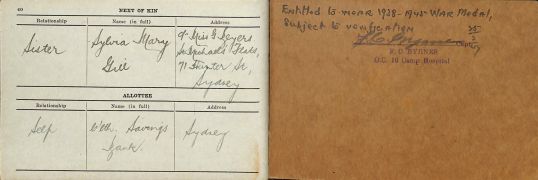 60
NEXT OF KIN
Relationship Name (in full) Address
Sister Sylvia Mary Gill c/- Miss G Seyers
St Michaels Flats,
71 Hunter St,
Sydney
ALLOTTEE
Relationship Name (in full) Address
Self C'wth. Savings Bank. Sydney
Entitled to wear 1939-1945 WAR Medal,
Subject to verification
Capt
F. C. BYRNES
O.C. 10 Camp Hospital